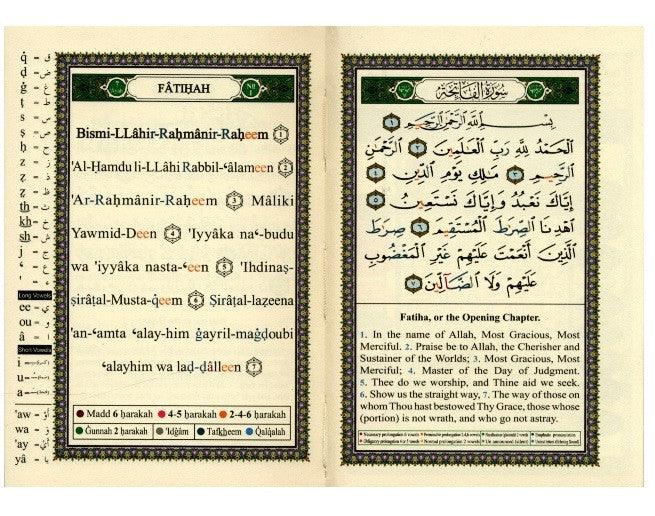 q̇ - ق
ḍ - ض
ġ - غ
ṭ - ط
s - س
ṣ - ص
ḥ - ح
z - ز
ẓ - ظ
th - ث
kh - خ
sh - ش
j - ج
Long Vowels
ee - ي
ou - و
â - ا
Short Vowels
i
u
a
'aw - أَوْ
wa - وَ
'ay - أَيْ
yâ - يَا
FÂTIḤAH
Bismi-LLâhir-Raḥmânir-Raḥeem 1
'Al-Ḥamdu li-LLâhi Rabbil-‘âlameen 2
'Ar-Raḥmânir-Raḥeem 3 Mâliki
Yawmid-Deen 4 'Iyyâka na‘-budu
wa 'iyyâka nasta-‘een 5 'Ihdinaṣ-
ṣirâṭal-Musta-q̇eem 6 Ṣirâṭal-laẓeena
'an-‘amta ‘alay-him ġayril-maġḍoubi
‘alayhim wa laḍ-ḍâlleen 7
Madd 6 ḥarakah 4-5 ḥarakah 2-4-6 ḥarakah
Ġunnah 2 ḥarakah 'Idġâm Tafkheem Q̇alq̇alah
سُورَةُ الْفَاتِحَةِ
بِسْمِ اللَّهِ الرَّحْمَٰنِ الرَّحِيمِ ١
الْحَمْدُ لِلَّهِ رَبِّ الْعَالَمِينَ ٢ الرَّحْمَٰنِ
الرَّحِيمِ ٣ مَالِكِ يَوْمِ الدِّينِ ٤
إِيَّاكَ نَعْبُدُ وَإِيَّاكَ نَسْتَعِينُ ٥
اهْدِنَا الصِّرَاطَ الْمُسْتَقِيمَ ٦ صِرَاطَ
الَّذِينَ أَنْعَمْتَ عَلَيْهِمْ غَيْرِ الْمَغْضُوبِ
عَلَيْهِمْ وَلَا الضَّالِّينَ ٧
Fatiha, or the Opening Chapter.
1. In the name of Allah, Most Gracious, Most
Merciful. 2. Praise be to Allah, the Cherisher and
Sustainer of the Worlds; 3. Most Gracious, Most
Merciful; 4. Master of the Day of Judgment.
5. Thee do we worship, and Thine aid we seek.
6. Show us the straight way, 7. The way of those on
whom Thou hast bestowed Thy Grace, those whose
(portion) is not wrath, and who go not astray.